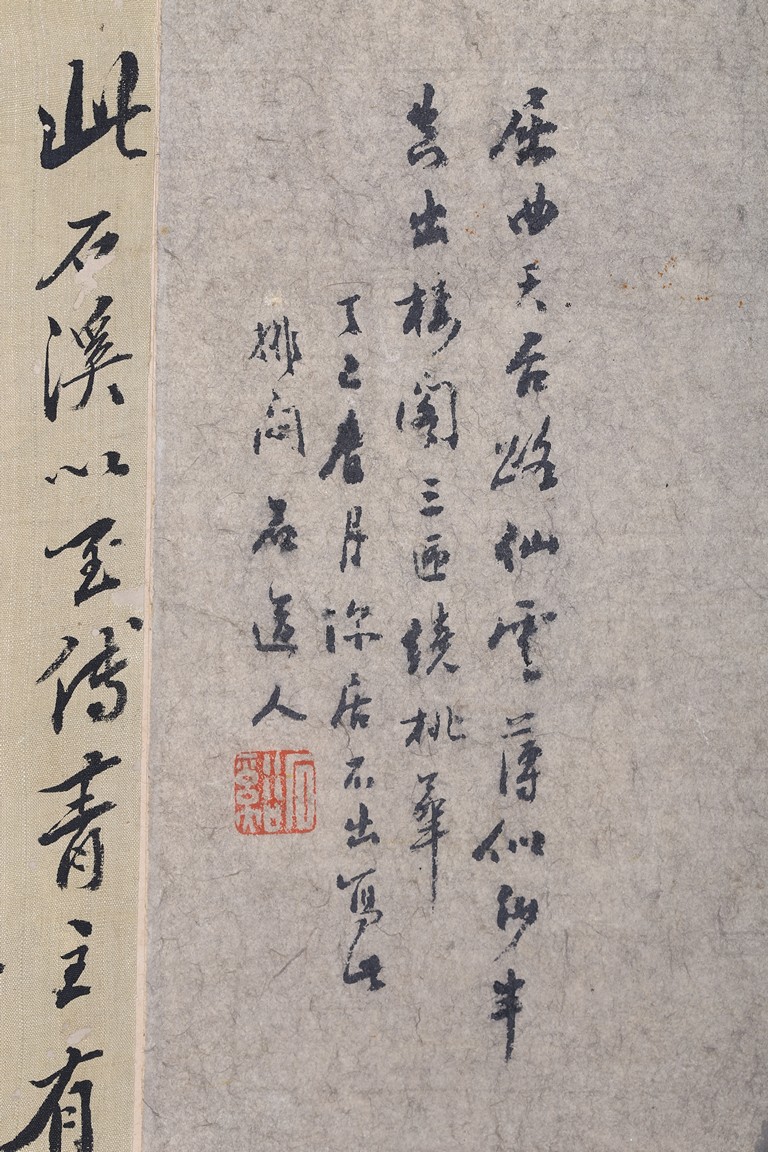 屈曲天台路仙雲薄似紗半
出樓閣三匝繞桃華
丁巳春月深居不出寫此
排悶石道人
此石溪以至傅青主有